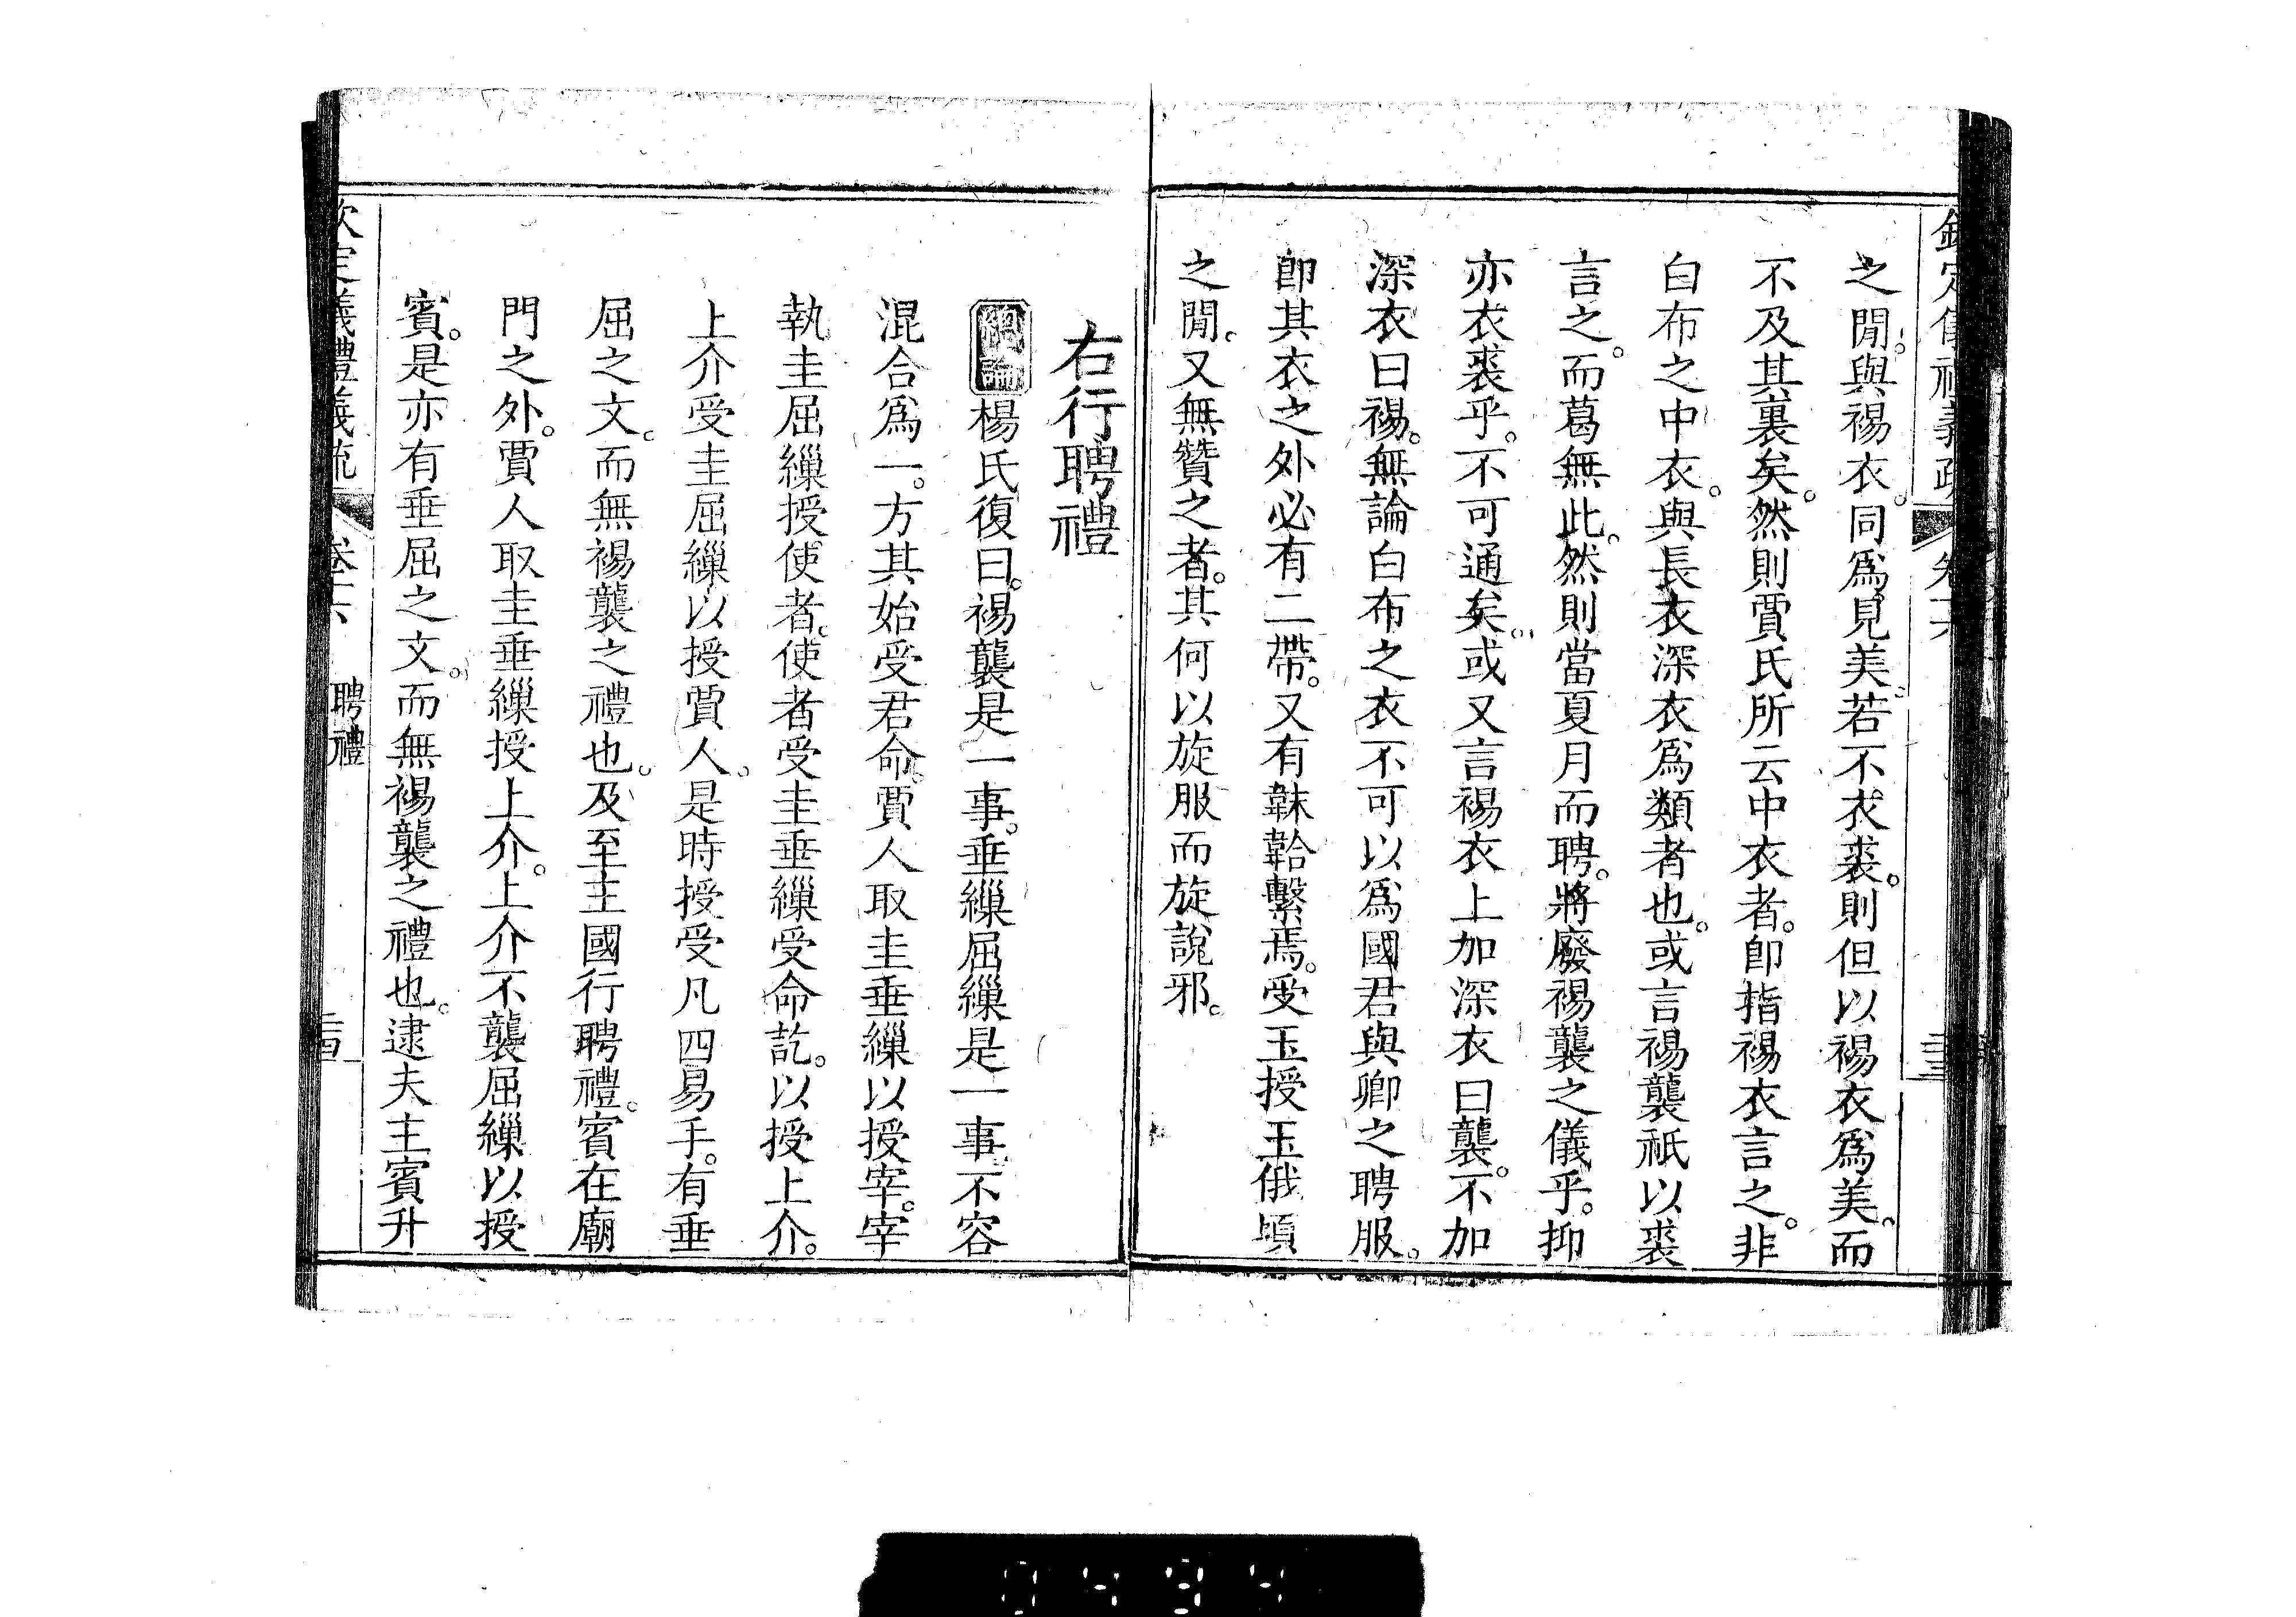 之閒。與裼衣。同爲見美。若不衣裘。則但以裼衣爲美。而
不及其裏矣。然則賈氏所云中衣者。卽指裼衣言之。非
白布之中衣。與長衣深衣爲類者也。或言裼襲祇以裘
言之。而葛無此。然則當夏月而聘。將廢裼襲之儀乎。抑
亦衣裘乎。不可通矣。或又言裼衣上加深衣曰襲。不加
深衣曰裼。無論白布之衣不可以爲國君與卿之聘服。
卽其衣之外必有二帶。又有韎韐繫焉。受玉授玉俄頃
之閒。又無贊之者。其何以旋服而旋說邪。
右行聘禮
總論楊氏復曰。裼襲是一事。垂繅屈繅是一事。不容
混合爲一。方其始受君命。賈人取圭垂繅以授宰。宰
執圭屈繅授使者。使者受圭垂繅受命訖。以授上介。
上介受圭屈繅以授賈人。是時授受凡四易手。有垂
屈之文。而無裼襲之禮也。及至主國行聘禮。賓在廟
門之外。賈人取圭垂繅授上介。上介不襲屈繅以授
賓。是亦有垂屈之文。而無裼襲之禮也。逮夫主賓升
欽定儀禮義疏 卷十六 聘禮